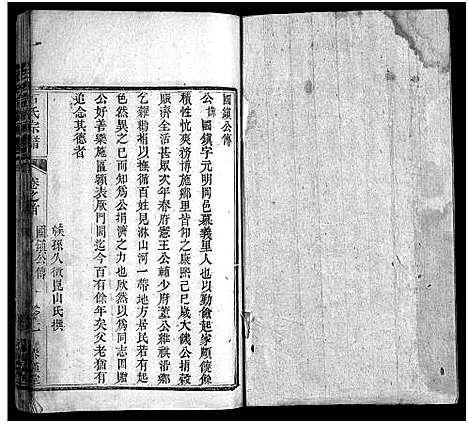 國鎮公傳
公諱國鎮字元明岡邑慕義里人也以勤儉起家頗饒餘
積性忱爽務博施鄉里皆仰之康熙己巳歲大饑公捐穀
賑濟生活甚眾次年春府憲王公輔少府董公雜祺沿鄉
乞糴勸捐以撫循百姓見淋山河一帶地方居民若有起
色然異之已而知為公捐濟之力也欣然以為同志因贈
公好善樂施匾額表厥門閭迄今百有餘年矣父老猶有
追念其德者
族孫久徵崑山氏撰
氏宗譜
卷之首
國鎮公傳